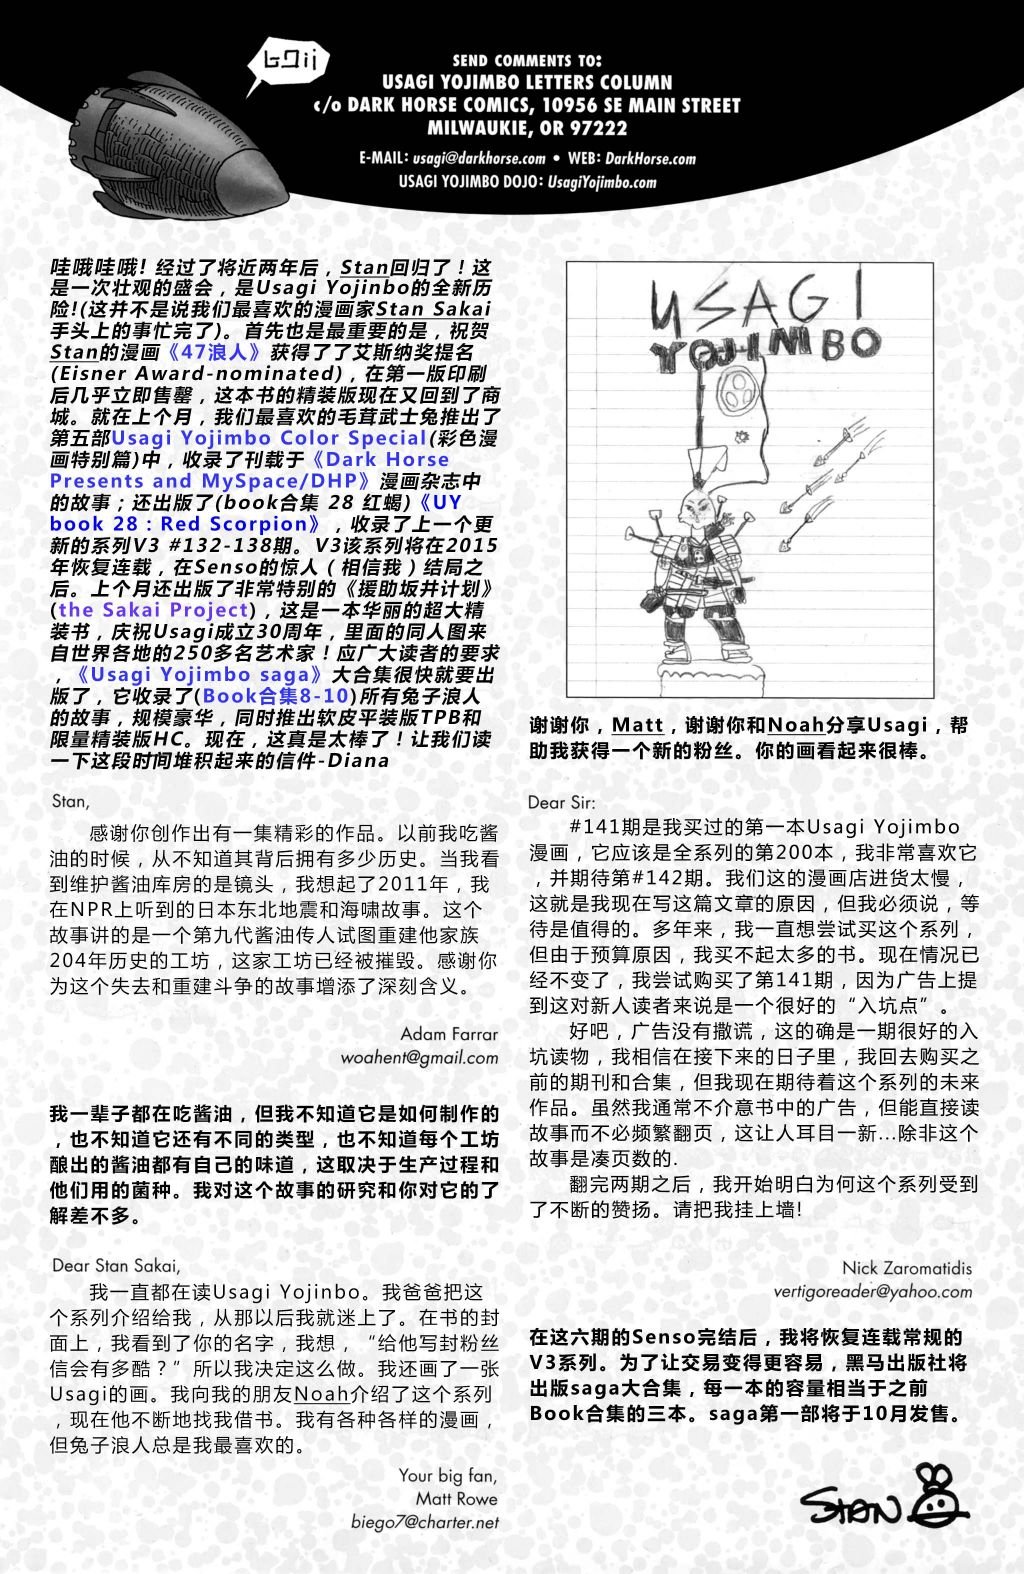 SEND COMMENTS TO:
USAGI YOJIMBO LETTERS COLUMN
c/o DARK HORSE COMICS, 10956 SE MAIN STREET
MILWAUKIE, OR 97222
E-MAIL: usagi@darkhorse.com • WEB: DarkHorse.com
USAGI YOJIMBO DOJO: UsagiYojimbo.com
哇哦哇哦! 经过了将近两年后，Stan回归了！这
是一次壮观的盛会，是Usagi Yojinbo的全新历
险!(这并不是说我们最喜欢的漫画家Stan Sakai
手头上的事忙完了)。首先也是最重要的是，祝贺
Stan的漫画《47浪人》获得了了艾斯纳奖提名
(Eisner Award-nominated)，在第一版印刷
后几乎立即售罄，这本书的精装版现在又回到了商
城。就在上个月，我们最喜欢的毛茸武士兔推出了
第五部Usagi Yojimbo Color Special(彩色漫
画特别篇)中，收录了刊载于《Dark Horse
Presents and MySpace/DHP》漫画杂志中
的故事；还出版了(book合集 28 红蝎)《UY
book 28：Red Scorpion》，收录了上一个更
新的系列V3 #132-138期。V3该系列将在2015
年恢复连载，在Senso的惊人（相信我）结局之
后。上个月还出版了非常特别的《援助坂井计划》
(the Sakai Project)，这是一本华丽的超大精
装书，庆祝Usagi成立30周年，里面的同人图来
自世界各地的250多名艺术家！应广大读者的要求
，《Usagi Yojimbo saga》大合集很快就要出
版了，它收录了(Book合集8-10)所有兔子浪人
的故事，规模豪华，同时推出软皮平装版TPB和
限量精装版HC。现在，这真是太棒了！让我们读
一下这段时间堆积起来的信件-Diana
Stan,
感谢你创作出有一集精彩的作品。以前我吃酱
油的时候，从不知道其背后拥有多少历史。当我看
到维护酱油库房的是镜头，我想起了2011年，我
在NPR上听到的日本东北地震和海啸故事。这个
故事讲的是一个第九代酱油传人试图重建他家族
204年历史的工坊，这家工坊已经被摧毁。感谢你
为这个失去和重建斗争的故事增添了深刻含义。
Adam Farrar
woahent@gmail.com
我一辈子都在吃酱油，但我不知道它是如何制作的
，也不知道它还有不同的类型，也不知道每个工坊
酿出的酱油都有自己的味道，这取决于生产过程和
他们用的菌种。我对这个故事的研究和你对它的了
解差不多。
Dear Stan Sakai,
我一直都在读Usagi Yojinbo。我爸爸把这
个系列介绍给我，从那以后我就迷上了。在书的封
面上，我看到了你的名字，我想，“给他写封粉丝
信会有多酷？”所以我决定这么做。我还画了一张
Usagi的画。我向我的朋友Noah介绍了这个系列
，现在他不断地找我借书。我有各种各样的漫画，
但兔子浪人总是我最喜欢的。
Your big fan,
Matt Rowe
biego7@charter.net
USAGI
YOJIMBO
谢谢你，Matt，谢谢你和Noah分享Usagi，帮
助我获得一个新的粉丝。你的画看起来很棒。
Dear Sir:
#141期是我买过的第一本Usagi Yojimbo
漫画，它应该是全系列的第200本，我非常喜欢它
，并期待第#142期。我们这的漫画店进货太慢，
这就是我现在写这篇文章的原因，但我必须说，等
待是值得的。多年来，我一直想尝试买这个系列，
但由于预算原因，我买不起太多的书。现在情况已
经不变了，我尝试购买了第141期，因为广告上提
到这对新人读者来说是一个很好的“入坑点”。
好吧，广告没有撒谎，这的确是一期很好的入
坑读物，我相信在接下来的日子里，我回去购买之
前的期刊和合集，但我现在期待着这个系列的未来
作品。虽然我通常不介意书中的广告，但能直接读
故事而不必频繁翻页，这让人耳目一新...除非这个
故事是凑页数的.
翻完两期之后，我开始明白为何这个系列受到
了不断的赞扬。请把我挂上墙!
Nick Zaromatidis
vertigoreader@yahoo.com
在这六期的Senso完结后，我将恢复连载常规的
V3系列。为了让交易变得更容易，黑马出版社将
出版saga大合集，每一本的容量相当于之前
Book合集的三本。saga第一部将于10月发售。
STAN